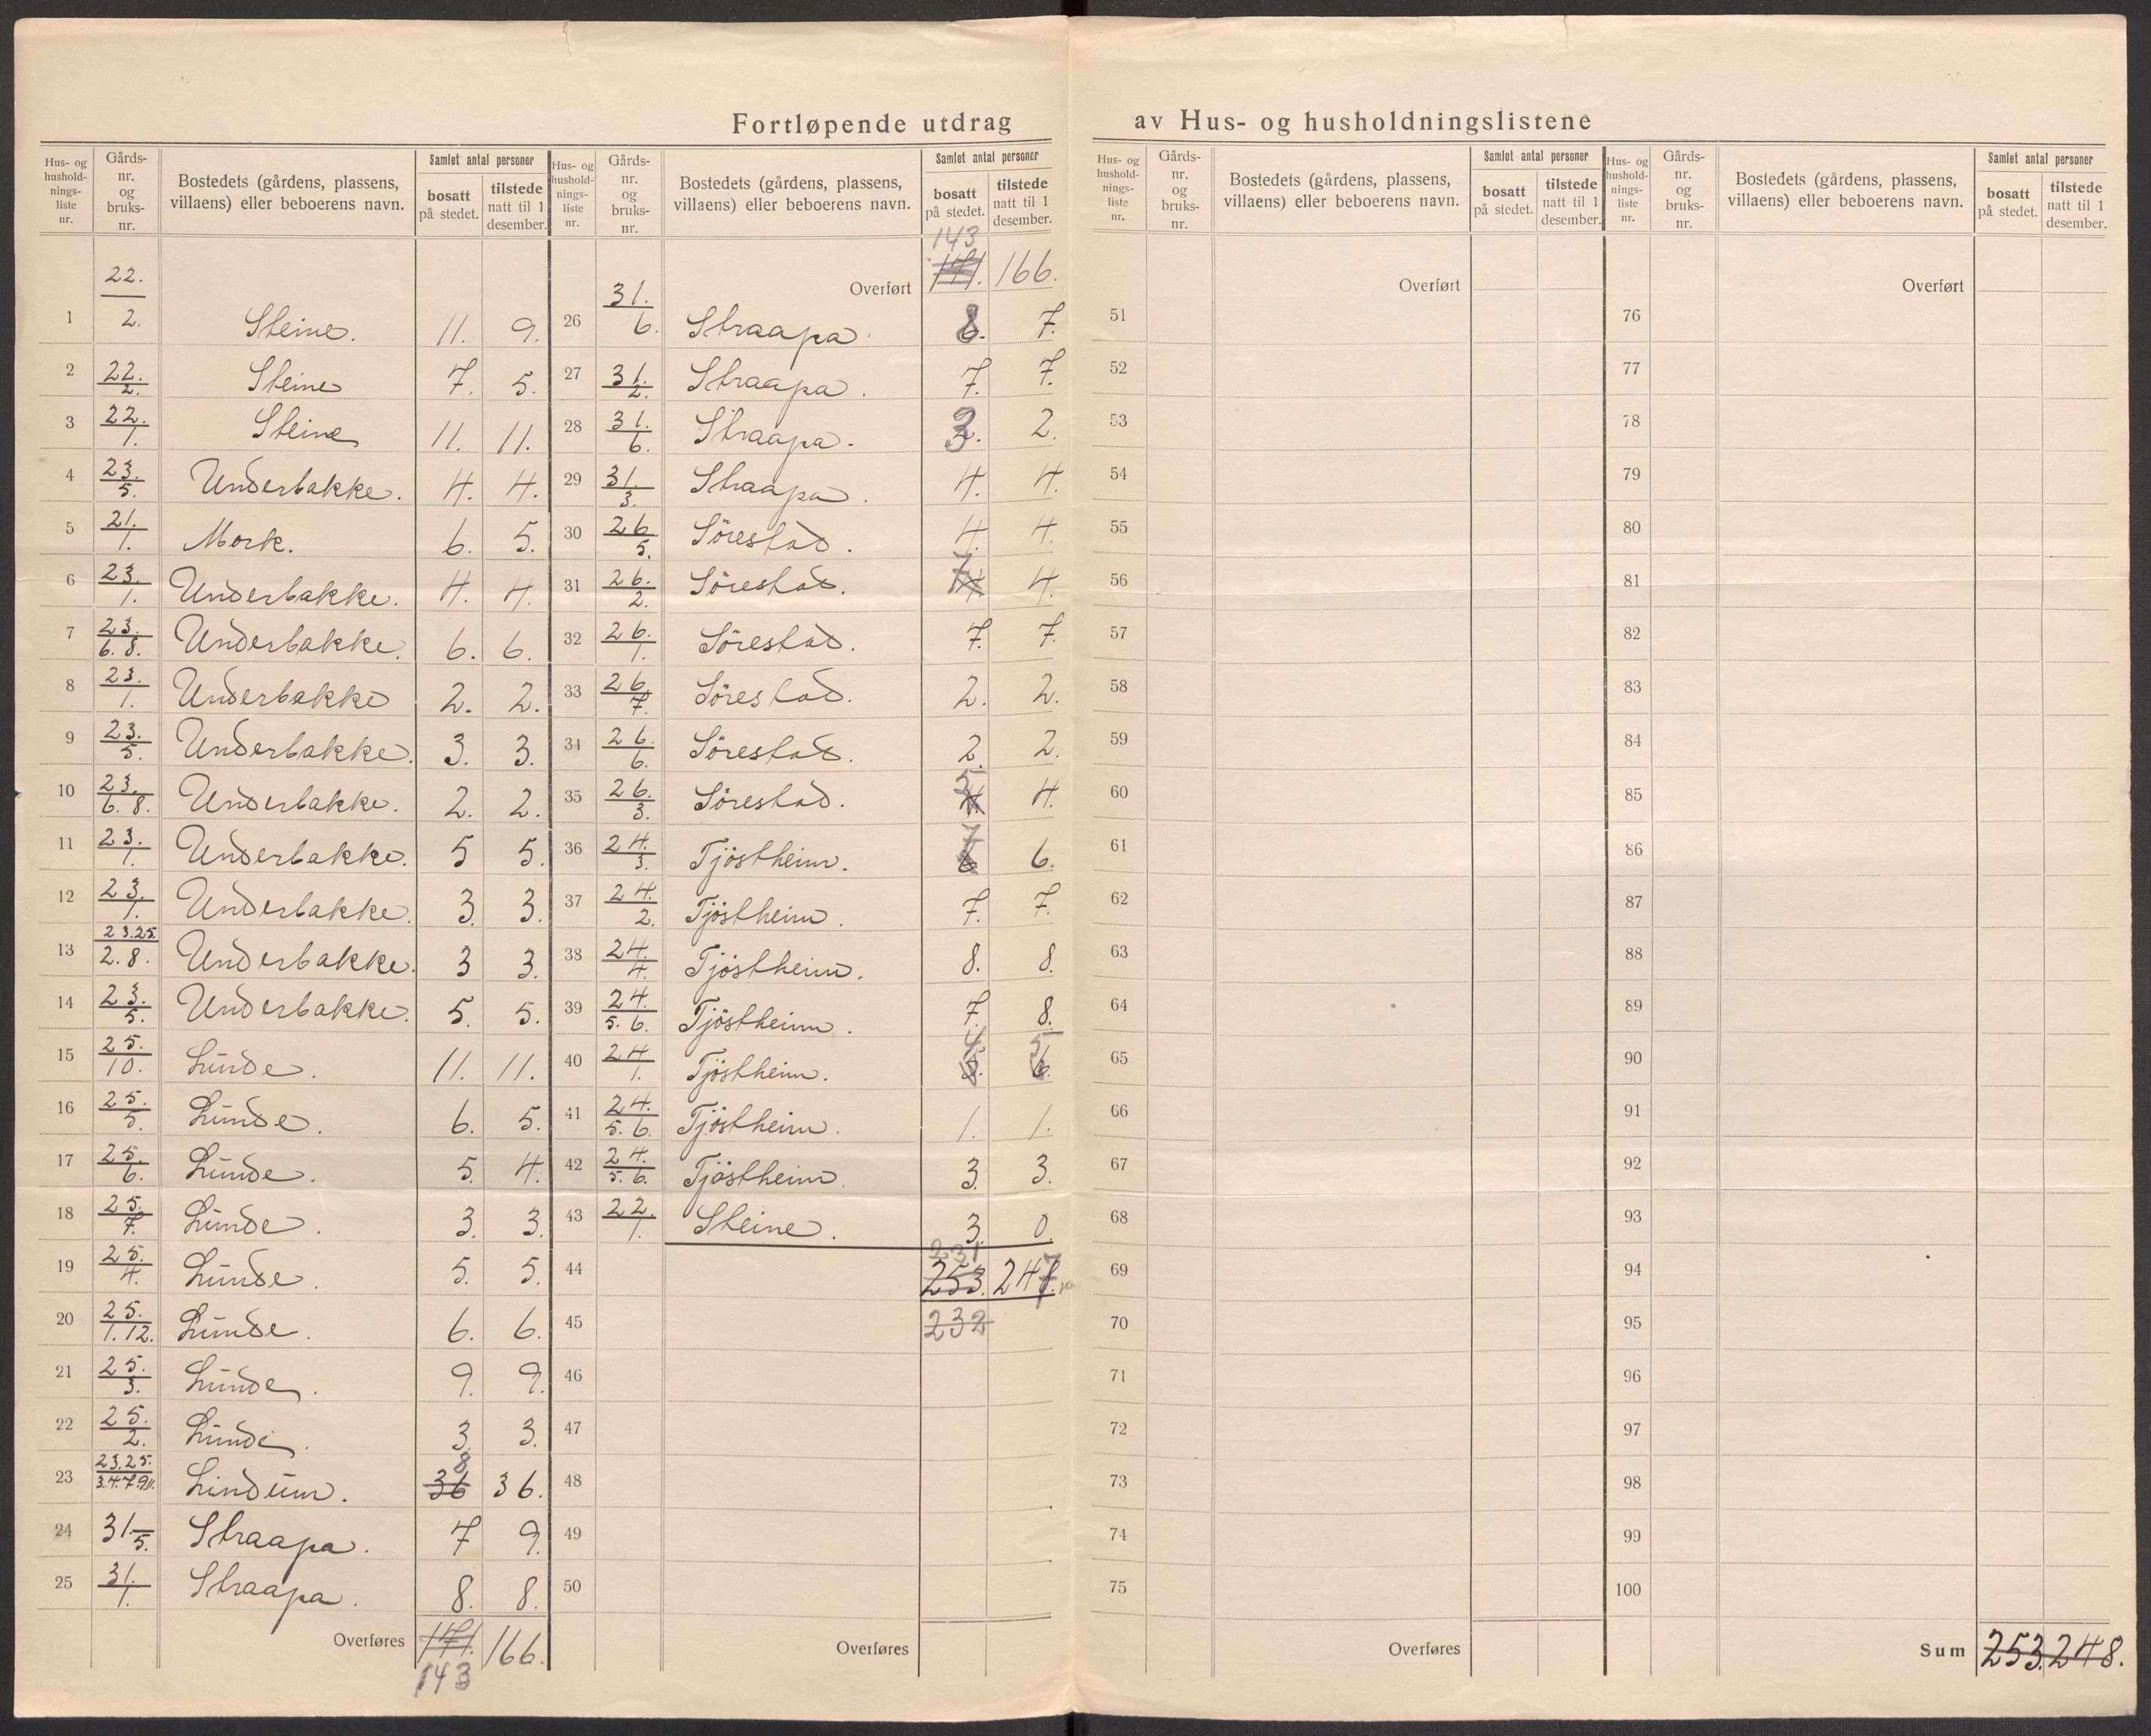 Fortløpende utdrag av Hus- og husholdningslistene
Hus- og husholdnings-liste nr. | Gårds-nr. og bruks-nr. | Bostedets (gårdens, plassens, villaens) eller beboerens navn. | Samlet antal personer bosatt på stedet. | tilstede natt til 1 desember.
1 22. / 2. Steine. 11. 9.
2 22. / 2. Steine 7. 5.
3 22. / 1. Steine 11. 11.
4 23. / 5. Underbakke. 4. 4.
5 21. / 1. Mork. 6. 5.
6 23. / 1. Underbakke. 4. 4.
7 23. / 6. 8. Underbakke. 6. 6.
8 23. / 1. Underbakke 2. 2.
9 23. / 5. Underbakke. 3. 3.
10 23. / 6. 8. Underbakke. 2. 2.
11 23. / 1. Underbakke. 5 5.
12 23. / 1. Underbakke. 3. 3.
13 23. 25. / 2. 8. Underbakke. 3 3.
14 23. / 5. Underbakke. 5. 5.
15 25. / 10. Lunde. 11. 11.
16 25. / 5. Lunde. 6. 5.
17 25. / 6. Lunde. 5. 4.
18 25. / 7. Lunde. 3. 3.
19 25. / 4. Lunde. 5. 5.
20 25. / 1. 12. Lunde. 6. 6.
21 25. / 3. Lunde. 9. 9.
22 25. / 2. Lunde. 3. 3.
23 23. 25. / 3. 4. 7. 9. 11. Lindum. 36 8 36.
24 31. / 5. Straapa. 7 9.
25 31. / 1. Straapa. 8. 8.
Overføres 171. 166.
143
Hus- og husholdnings-liste nr. | Gårds-nr. og bruks-nr. | Bostedets (gårdens, plassens, villaens) eller beboerens navn. | Samlet antal personer bosatt på stedet. | tilstede natt til 1 desember.
143
Overført 171. 166.
26 31. / 6. Straapa. 8. 7.
27 31. / 2. Straapa. 7. 7.
28 31. / 6. Straapa. 3. 2.
29 31. / 3. Straapa. 4. 4.
30 26 / 5. Sörestad. 4. 4.
31 26. / 2. Sörestad. 7 4. 4.
32 26. / 1. Sörestad. 7. 7.
33 26. / 7. Sörestad. 2. 2.
34 26. / 6. Sörestad. 2. 2.
35 26. / 3. Sörestad. 5 4. 4.
36 24. / 3. Tjöstheim. 7 6 6.
37 24. / 2. Tjöstheim. 7. 7.
38 24. / 4. Tjöstheim. 8. 8.
39 24. / 5. 6. Tjöstheim. 7. 8.
40 24. / 1. Tjöstheim. 4 5. 5 6.
41 24. / 5. 6. Tjöstheim. 1. 1.
42 24. / 5. 6. Tjöstheim. 3. 3.
43 22. / 1. Steine. 3. 0.
231
44 253. 247.
45 232
46
47
48
49
50
Overføres
Hus- og husholdnings-liste nr. | Gårds-nr. og bruks-nr. | Bostedets (gårdens, plassens, villaens) eller beboerens navn. | Samlet antal personer bosatt på stedet. | tilstede natt til 1 desember.
Overført
51
52
53
54
55
56
57
58
59
60
61
62
63
64
65
66
67
68
69
70
71
72
73
74
75
Overføres
Hus- og husholdnings-liste nr. | Gårds-nr. og bruks-nr. | Bostedets (gårdens, plassens, villaens) eller beboerens navn. | Samlet antal personer bosatt på stedet. | tilstede natt til 1 desember.
Overført
76
77
78
79
80
81
82
83
84
85
86
87
88
89
90
91
92
93
94
95
96
97
98
99
100
Sum 253. 248.